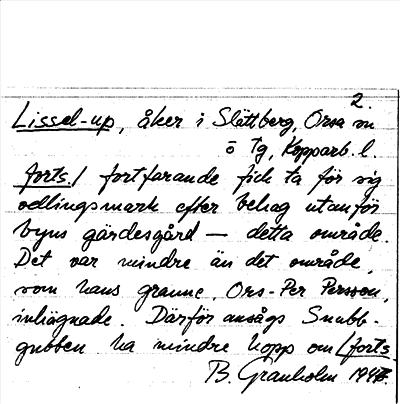 2.
Lissel-up, åker i Slättberg, Orsa sn
ö tg, Kopparb. l.
forts./ fortfarande fick ta för sig
odlingsmark efter behag utanför
byns gärdesgård — detta område.
Det var mindre än det område,
som hans granne, Ors-Per Persson,
inhägnade. Därför ansågs Snubb-
gubben ha mindre hopp om /forts.
B. Granholm